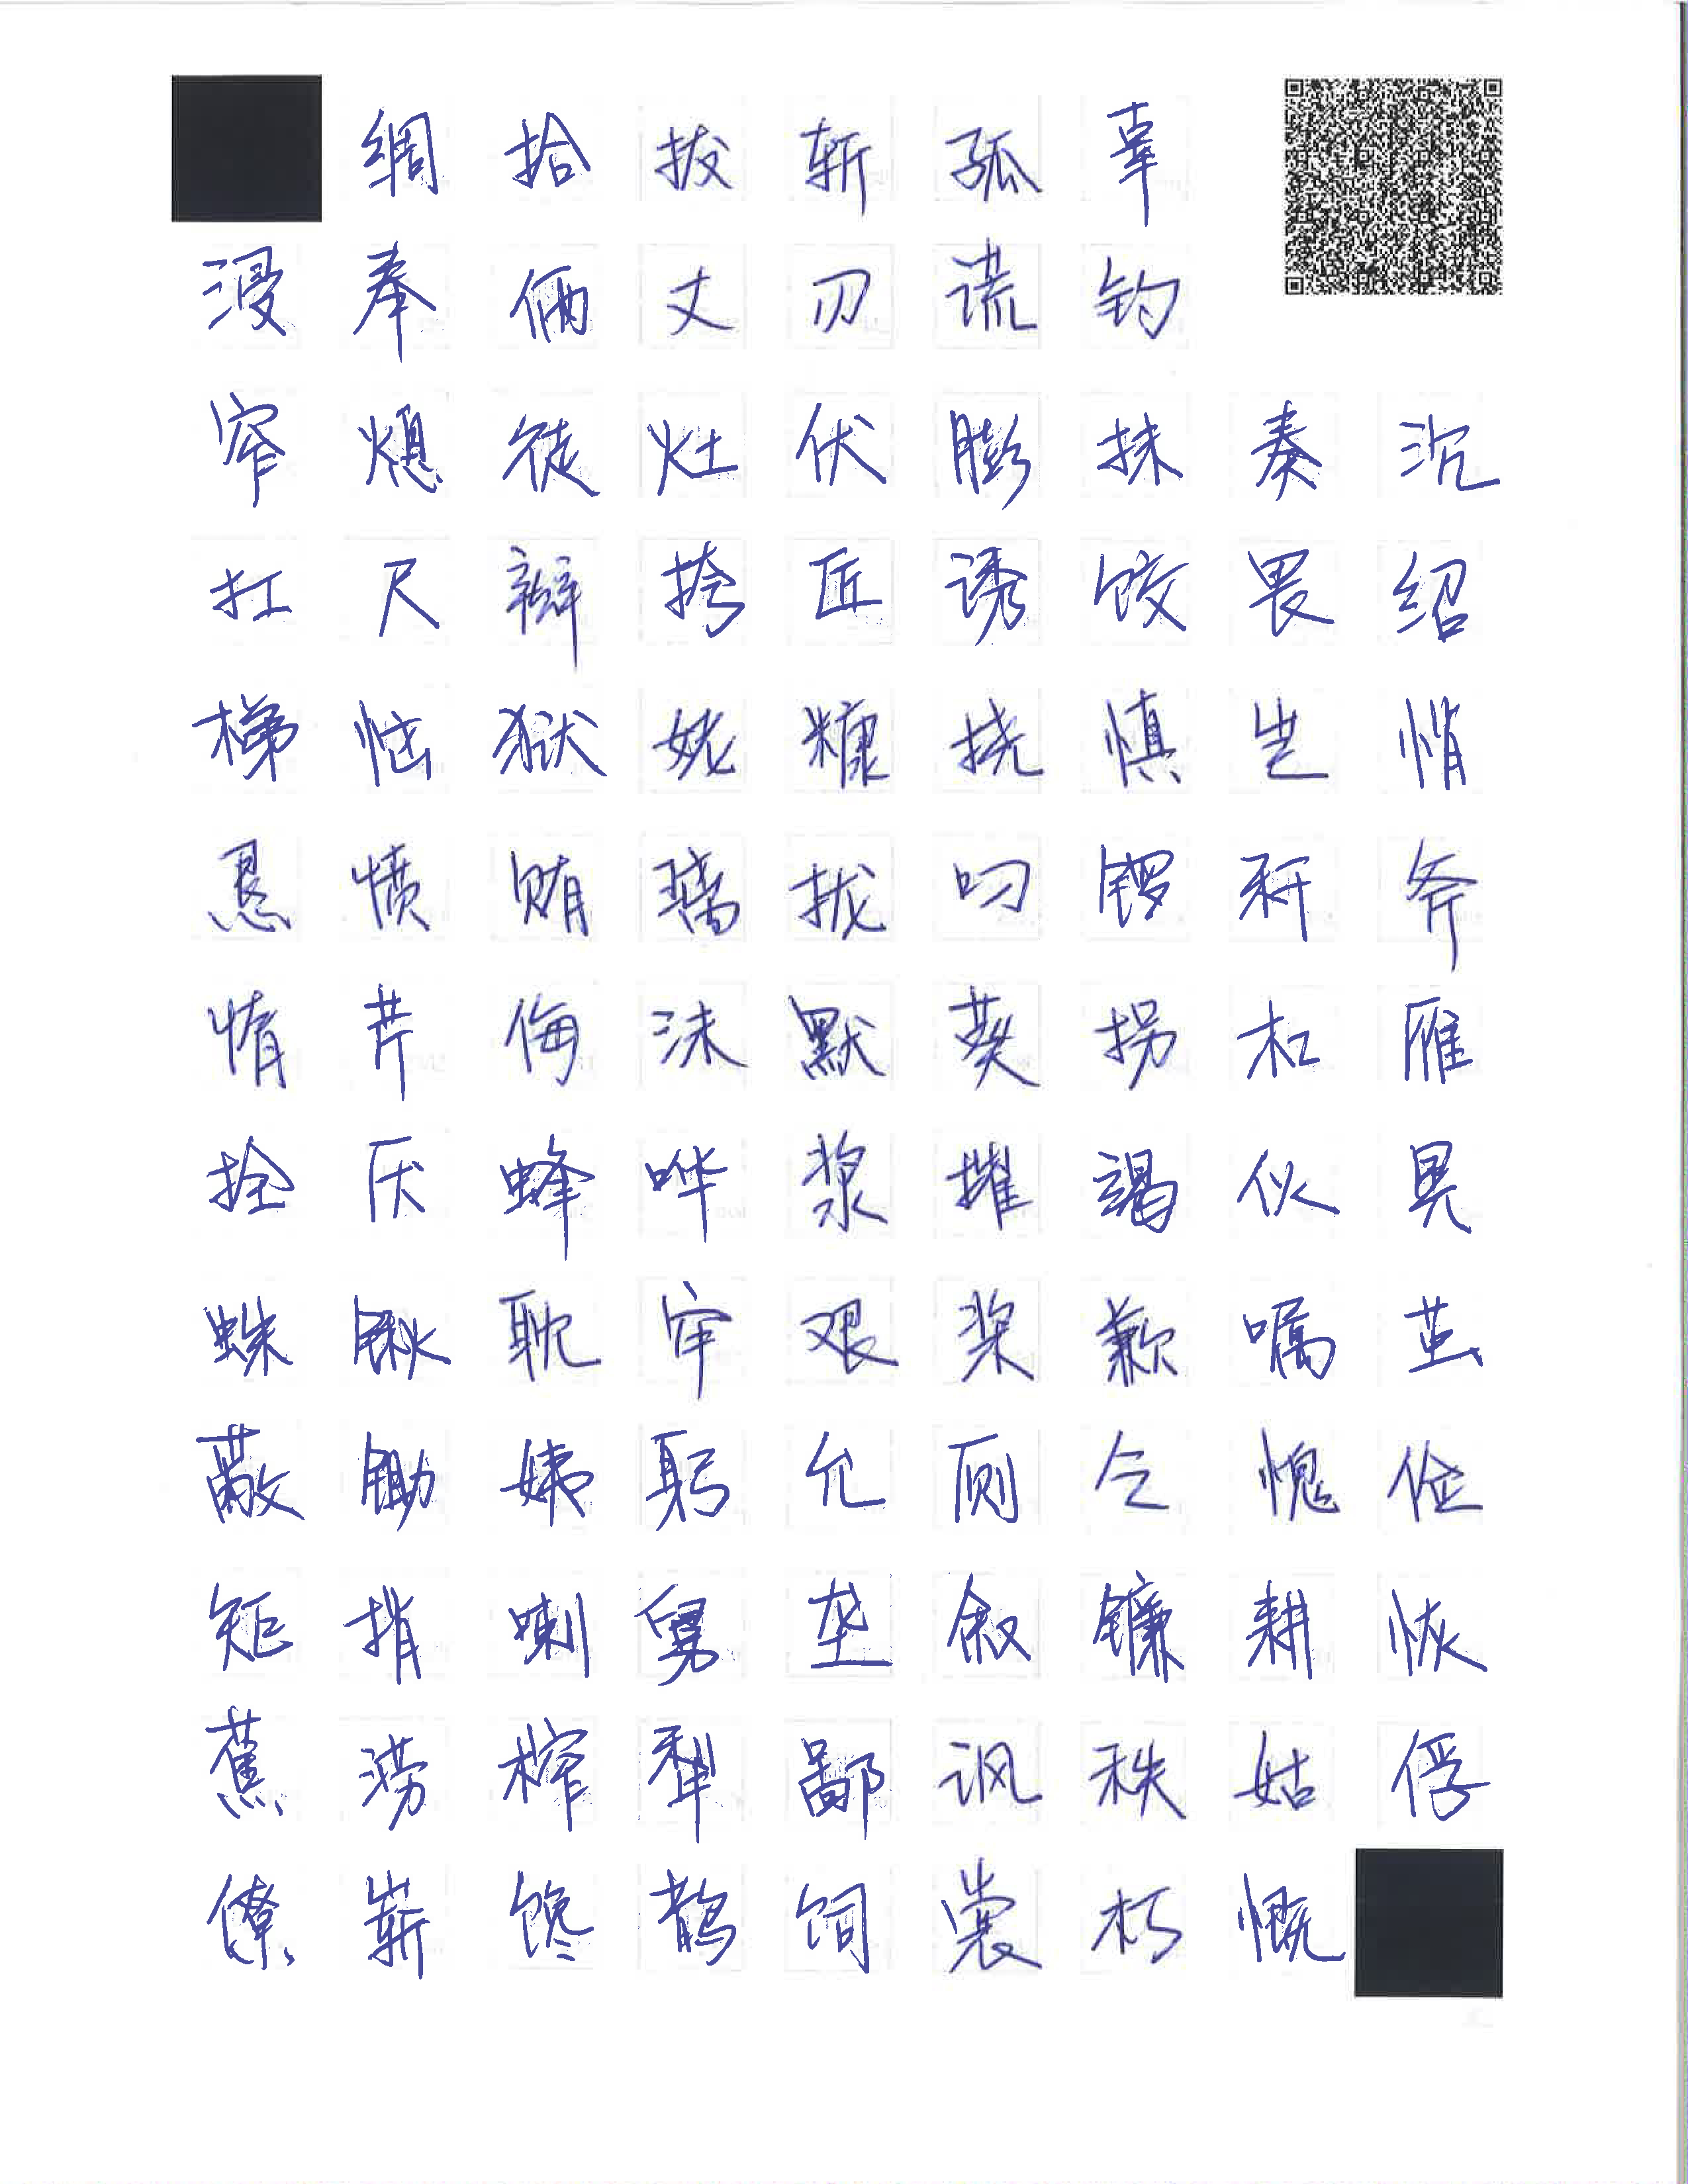 绸拾拔斩孤辜
浸奉俩丈刃谎钓
窄熄徒灶伏膨抹奏沉
扛尺辩挎匠诱饺畏绍
梯恼狱姥糠挠慎岂悄
恳愤贿璃拢叼锣秆斧
惰芹侮沫默葵拐杠雁
拴厌蜂哗浆摧竭伙具
蛛锹耽牢艰桨歉嘱茧
蔽锄姨躬允厕乞愧俭
矩捎喇舅垄叙镰耕恢
蕉涝榨犁鄙讽秩姑俘
僚崭馋鹊饲裳朽慨